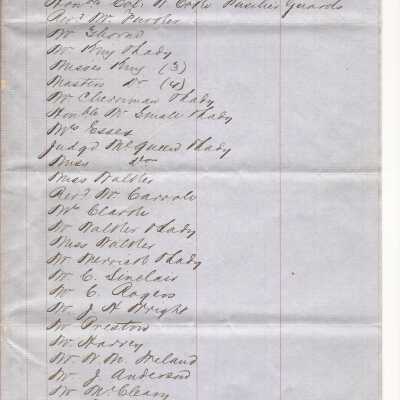 Honble Col. R Cooke Fusilier Guards
Revd Mr Fussler
Mr Thorne
Mr King & Lady
Misses King (3)
Masters Do (4)
Mr Cherriman & Lady
Honble Mr Small & Lady
Mrs Essex
Judge McQueen & Lady
Miss Do
Miss Walker
Revd Mr Carroll
Mr Clarke
Mr Walker & Lady
Miss Walker
Mr Merritt & Lady
Mr C. Sinclair
Mr C. Rogers
Mr J H Wright
Mr Preston
Mr Harvey
Mr W M Ireland
Mr J Anderson
Mr McCleary